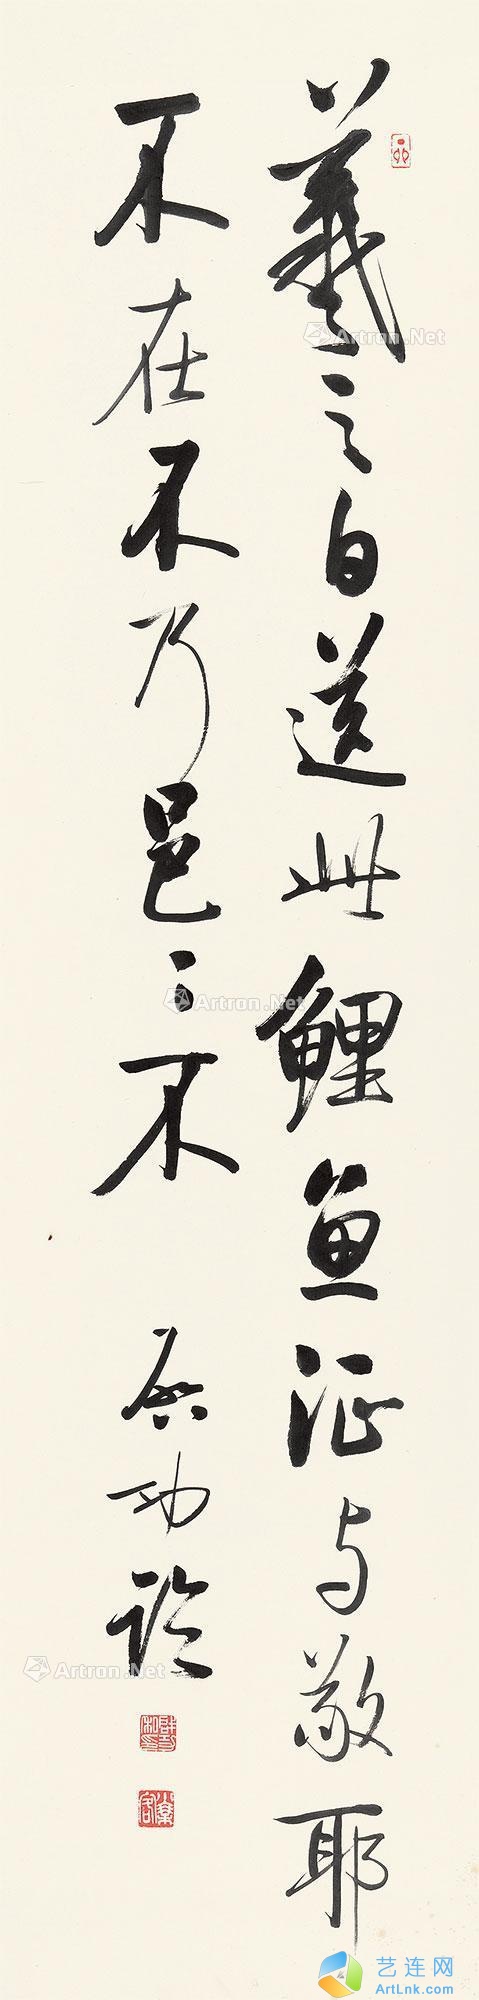 羲之白送此鲤鱼征与敬耶
不在不乃邑〻不 启功临
Artron.Net
Artron.Net
Artron.Net
艺连网
ArtLnk.com